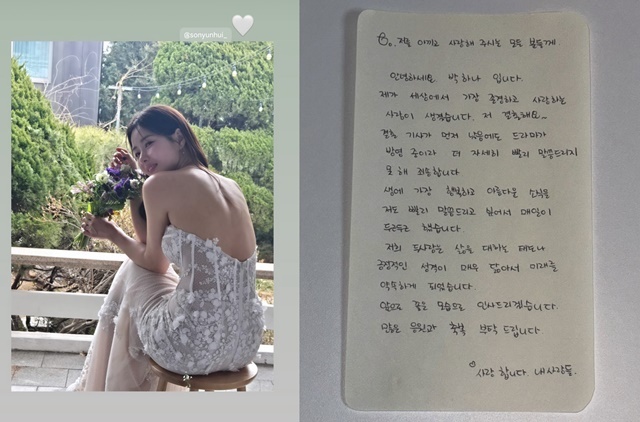 @sonyunhui_
저를 아끼고 사랑해 주시는 모든 분들께
안녕하세요 박하나 입니다.
제가 세상에서 가장 존경하고 사랑하는
사람이 생겼습니다. 저 결혼해요~
결혼 기사가 먼저 났음에도 드라마가
방영 중이라 더 자세히 빨리 말씀드리지
못 해 죄송합니다.
생에 가장 행복하고 아름다운 소식을
저도 빨리 말씀드리고 싶어서 매일이
두근두근 했습니다
저희 두사람은 삶을 대하는 태도나
긍정적인 성격이 매우 닮아서 미래를
약속하게 되었습니다.
앞으로 좋은 모습으로 인사드리겠습니다.
많은 응원과 축복 부탁 드립니다.
사랑 합니다. 내사람들.